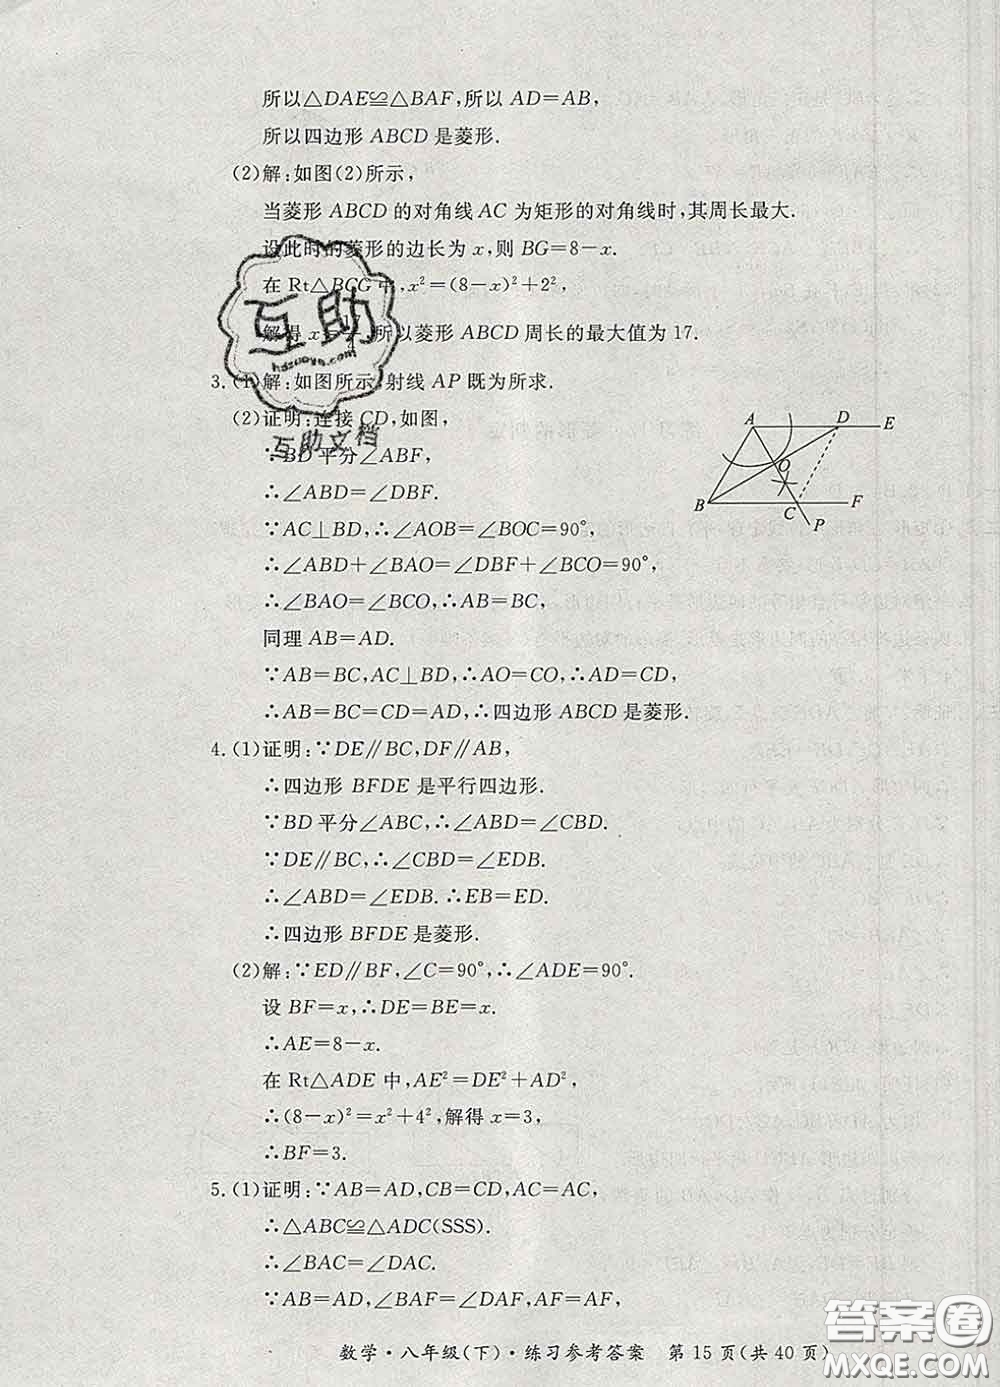 所以△DAE≌△BAF,所以 AD=AB,
所以四边形 ABCD 是菱形.
(2)解:如图(2)所示,
当菱形 ABCD 的对角线 AC 为矩形的对角线时,其周长最大.
设此时的菱形的边长为 x,则 BG=8-x.
在 Rt△BCG 中,x²=(8-x)²+2²,
解得 x= ,所以菱形 ABCD 周长的最大值为 17.
互助
hdzuoye.com
互助文档
3. (1)解:如图所示,射线 AP 既为所求.
(2)证明:连接 CD,如图,
∵BD 平分∠ABF,
∴∠ABD=∠DBF.
∵AC⊥BD,∴∠AOB=∠BOC=90°,
∴∠ABD+∠BAO=∠DBF+∠BCO=90°,
∴∠BAO=∠BCO,∴AB=BC,
同理 AB=AD.
∵AB=BC,AC⊥BD,∴AO=CO,∴AD=CD,
∴AB=BC=CD=AD,∴四边形 ABCD 是菱形.
A D E
O
B C F
P
4. (1)证明:∵DE∥BC,DF∥AB,
∴四边形 BFDE 是平行四边形.
∵BD 平分∠ABC,∴∠ABD=∠CBD.
∵DE∥BC,∴∠CBD=∠EDB.
∴∠ABD=∠EDB.∴EB=ED.
∴四边形 BFDE 是菱形.
(2)解:∵ED∥BF,∠C=90°,∴∠ADE=90°.
设 BF=x,∴DE=BE=x.
∴AE=8-x.
在 Rt△ADE 中,AE²=DE²+AD²,
∴(8-x)²=x²+4²,解得 x=3,
∴BF=3.
5. (1)证明:∵AB=AD,CB=CD,AC=AC,
∴△ABC≌△ADC(SSS).
∴∠BAC=∠DAC.
∵AB=AD,∠BAF=∠DAF,AF=AF,
数学·八年级(下)·练习参考答案 第 15 页(共 40 页)
答案圈
MXQE.COM